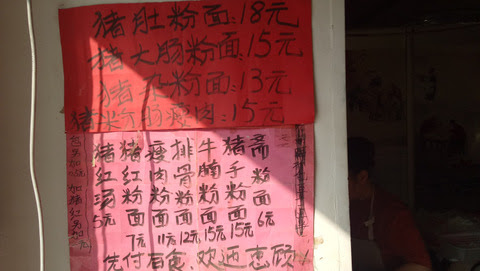 猪肚粉面:18元
猪大肠粉面:15元
猪
粉面:13元
猪粉肠瘦肉:15元
猪红汤5元
猪红粉面7元
瘦肉粉面11元
排骨粉面12元
牛腩粉面15元
猪手粉面15元
斋粉面6元
先付后食、欢迎惠顾!